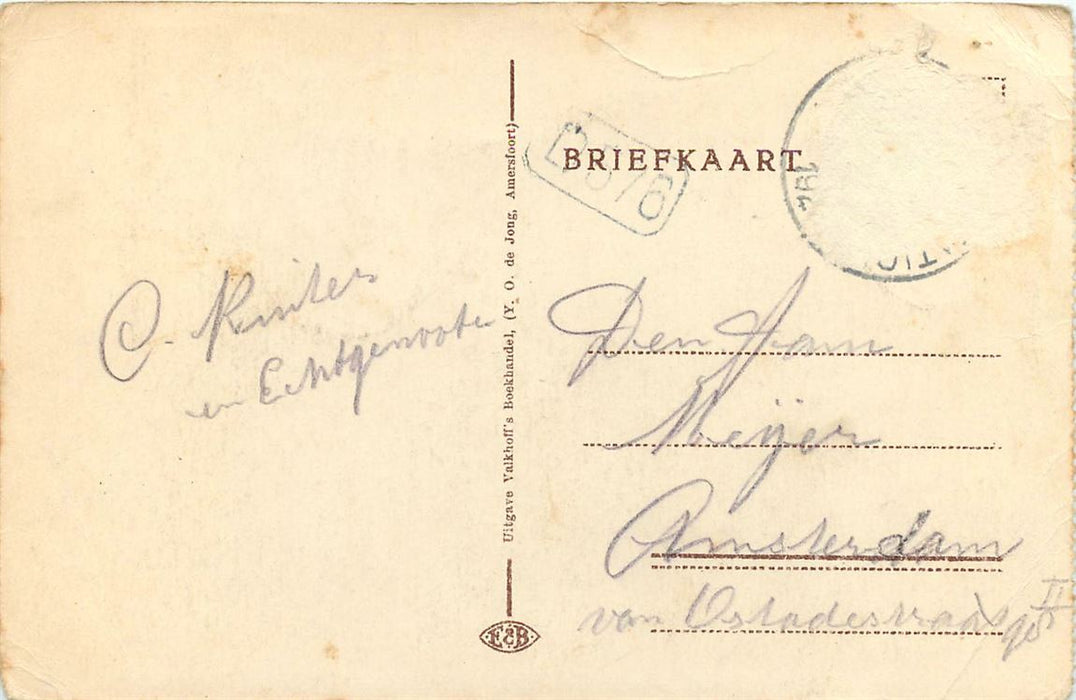 C. Ruiters
en Echtgenoote
Uitgave Valkhoff's Boekhandel, (Y. O. de Jong, Amersfoort)
E&B
BRIEFKAART
Den Ham
Meijer
Amsterdam
van Ostadestraat
II